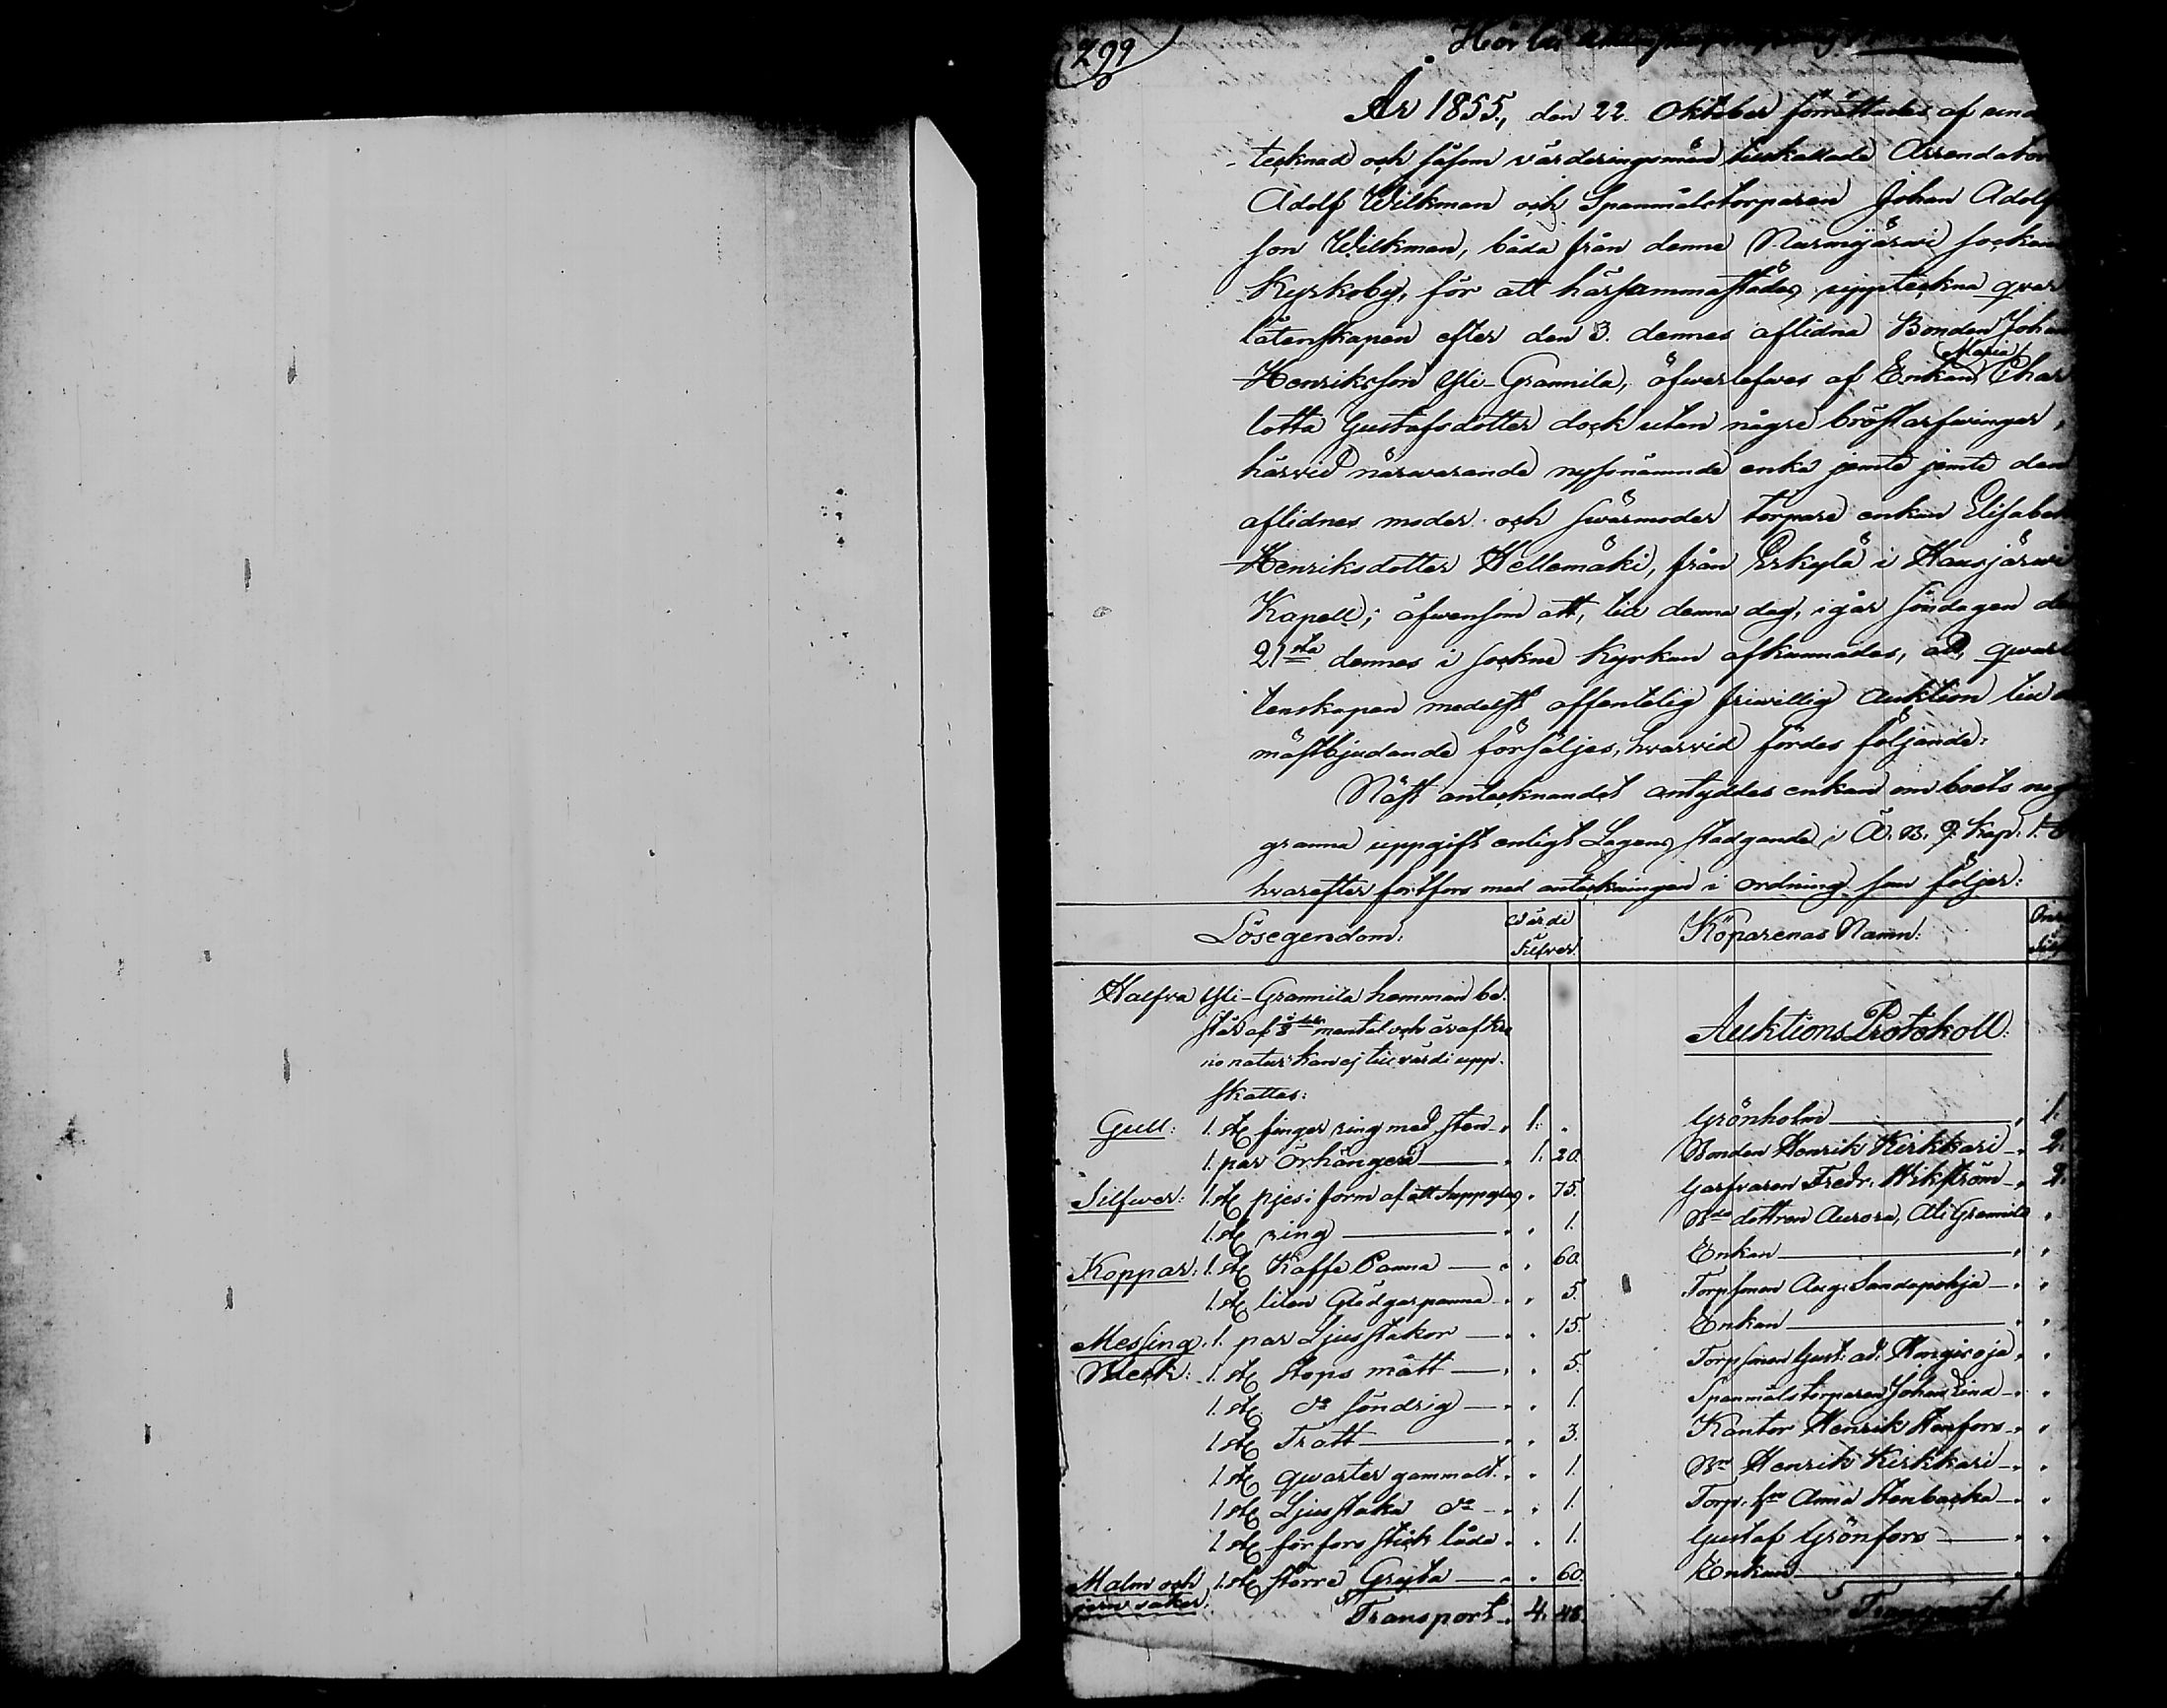 299
År 1855, den 22. Oktober förrättades af und
tecknad och såsom värderingsmän tillkallade Arrendator
Adolf Wilkman och Spanmålstorparen Johan Adolf
son Wilkman, båda från denna Nurmijärwi socken
Kyrkoby, för att härsammastädes uppteckna qvar
låtenskapen efter den 3. dennes aflidna Bonden Johan
Maria
Henriksson Yli-Grannila, öfwerlefwes af Enkan Char
lotta Gustafsdotter dock utan någre bröstarfwingar,
härvid närwarande nyssnämnde enka jemte jemte den
aflidnes moder och swärmoder torpare enkan Elisabet
Henriksdotter Hellemäki, från Erkylä i Hausjärwi
Kapell; äfwensom att, till denna dag, igår söndagen de
21sta dennes i sockne Kyrkan afkunnades, att qwarl
tenskapen medelst offentelig friwillig Auktion till
mästbjudande försäljes, hvarvid fördes följande:
Näst antecknandet antyddes enkan om boets nog
granna uppgift enligt Lagens stadgande i Ä. B. 9. Kap. 1. §
hvarefter fortfors med anteckningen i ordning som följer:
Lösegendom: Värdi Silfver. Köparenas Namn:
Halfva Yli-Grannila hemman be-
står af mantal och är af Kro
no natur kan ej till värdi upp-
skattas: Auktions Protokoll:
Gull: 1. st finger ring med sten 1. Grönholm 1.
1. par Örhängen 1. 20. Bonden Henrik Kirkkari 2.
Silfwer: 1. st pjes i form af ett Suppglas 75. Garfvaren Fredr. Wikström 2.
1. st ring 1. Bde dottren Aurora, Ali Grannila
Koppar: 1. st Kaffe Panna 60. Enkan
1. st liten Glödgarpanna 5. Torpsonen Aug. Sandapohja
Messing: 1. par Ljusstakor 15. Enkan
Bleck: 1. st Stops mått 5. Torpsonen Gust: ad: Hongisoja
1. st do söndrig 1. Spanmålstorparen Johan Lind
1 st Tratt 3. Kantor Henrik Stenfors
1 st qwarter gammalt 1. Bn Henrik Kirkkari
1 st Ljusstaka do 1. Torp. Anna Stenbacka
1 st fosfors stick låda 1. Gustaf Grönfors
Malm och 1. st större Gryta 60 Enkan
jern saker: Transport 4. 48. Transport